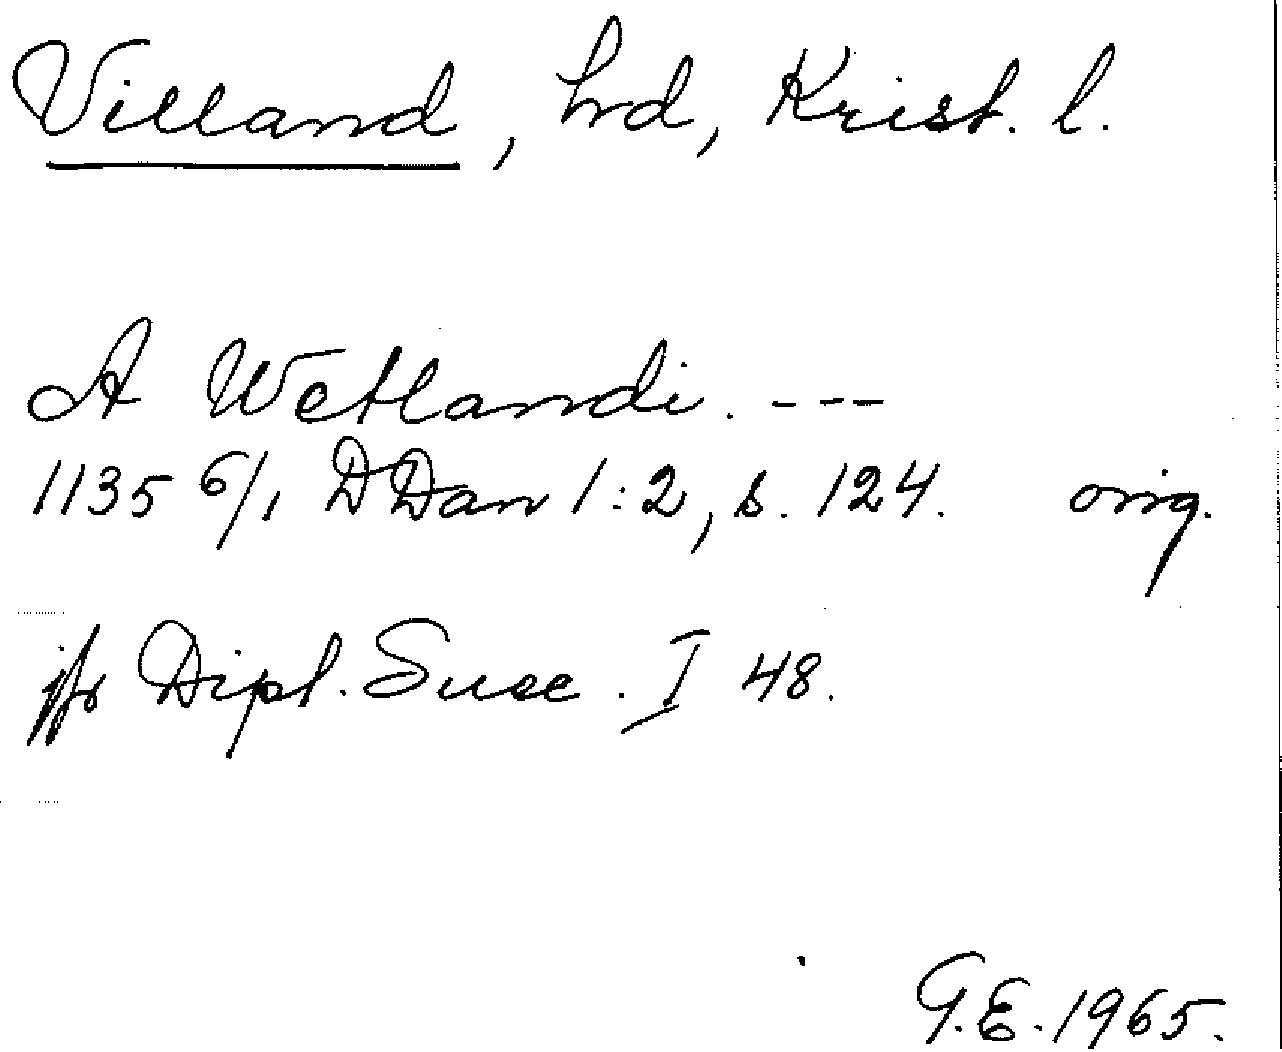 Villand, hd, Krist. l.
A Wetlandi. ---
1135 6/1 DDan 1:2, s. 124. orig.
jfr Dipl. Suec. I 48.
G.E. 1965.